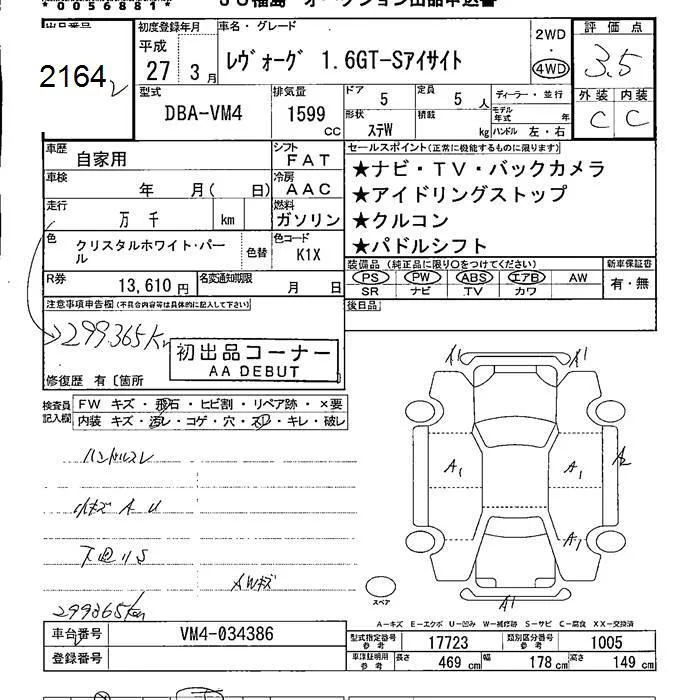 *0056881*
JU福島 オークション出品申込書
出品番号
2164
初度登録年月
平成
27 3月
車名・グレード
レヴォーグ 1.6GT-Sアイサイト
2WD
4WD
評価点
3.5
外装 内装
C C
型式
DBA-VM4
排気量
1599
CC
ドア
5
定員
5 人
形状
ステW
積載
kg
ディーラー・並行
モデル年式 年
ハンドル 左・右
車歴
自家用
シフト
FAT
車検
年 月( 日)
冷房
AAC
走行
万 千
km
燃料
ガソリン
色
クリスタルホワイト・パール
色替
色コード
K1X
R券
13,610 円
名変通知期限
月 日
セールスポイント(正常に機能するものに限ります)
★ナビ・TV・バックカメラ
★アイドリングストップ
★クルコン
★パドルシフト
装備品 (純正品に限り○をつけてください)
PS PW ABS エアB AW
SR ナビ TV カワ
新車保証書
有・無
後日品
注意事項申告欄(不具合内容等は具体的に記入して下さい)
299365Km
初出品コーナー
AA DEBUT
修復歴 有〔箇所
検査員記入欄
FW キズ・飛石・ヒビ割・リペア跡・×要
内装 キズ・汚レ・コゲ・穴・スレ・キレ・破レ
ハンドルスレ
小キズ A U
下廻りS
AWキズ
299365Km
A1 A1
A1 A1 A2
A1
A1
スペア
A-キズ E-エクボ U-凹み W-補修跡 S-サビ C-腐食 XX-交換済
車台番号
VM4-034386
登録番号
型式指定番号 参考
17723
類別区分番号 参考
1005
車庫証明用 参考
長さ 469 cm
幅 178 cm
高さ 149 cm